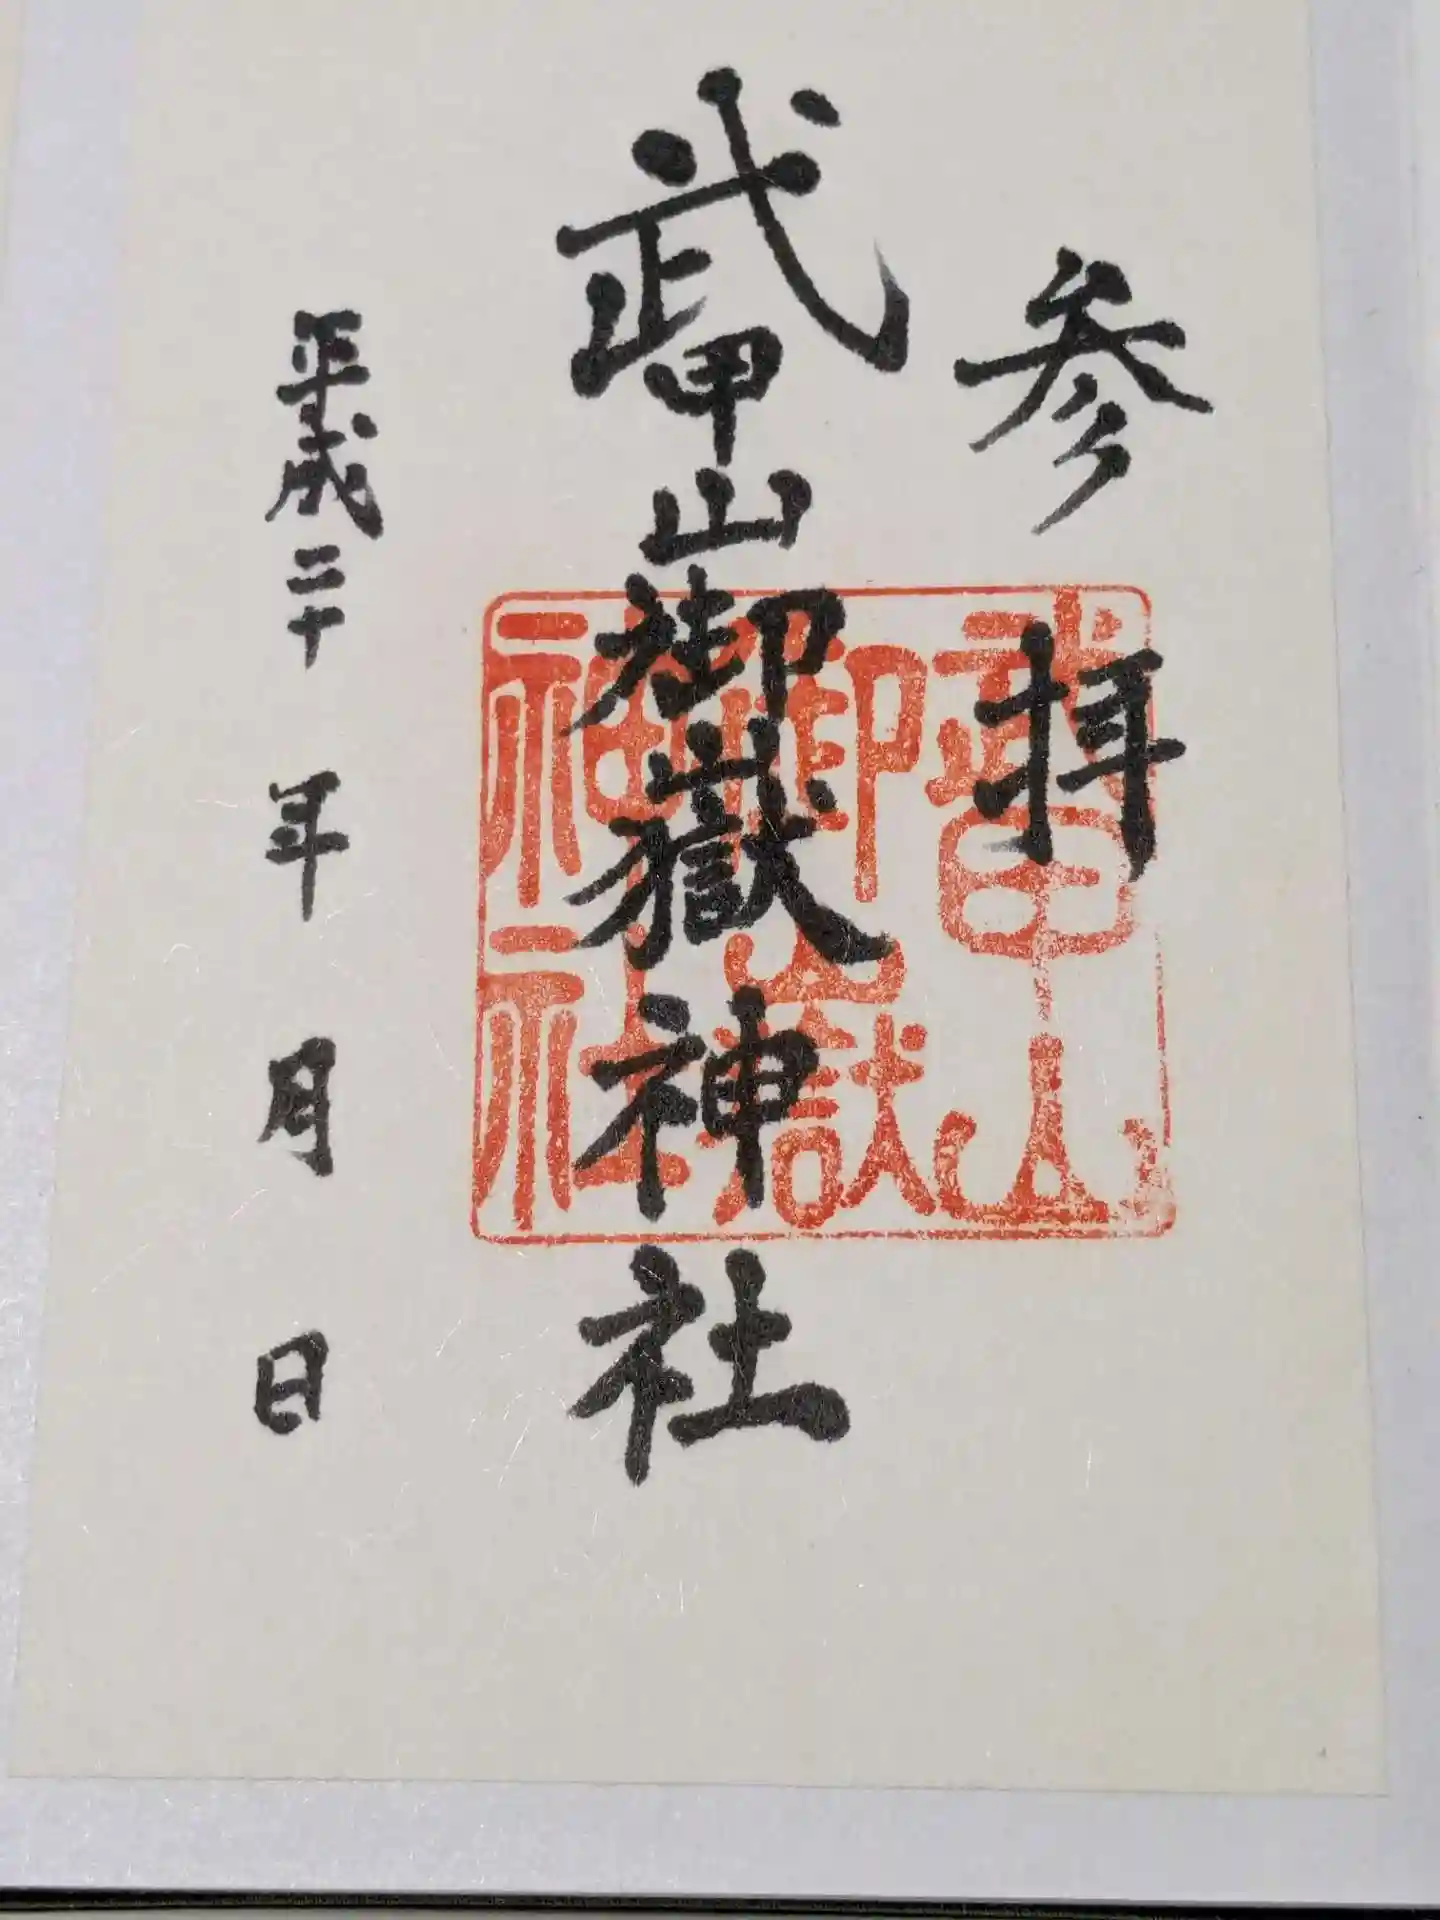 参拝
武甲山御嶽神社
平成二十 年 月 日
武甲山
御嶽
神社